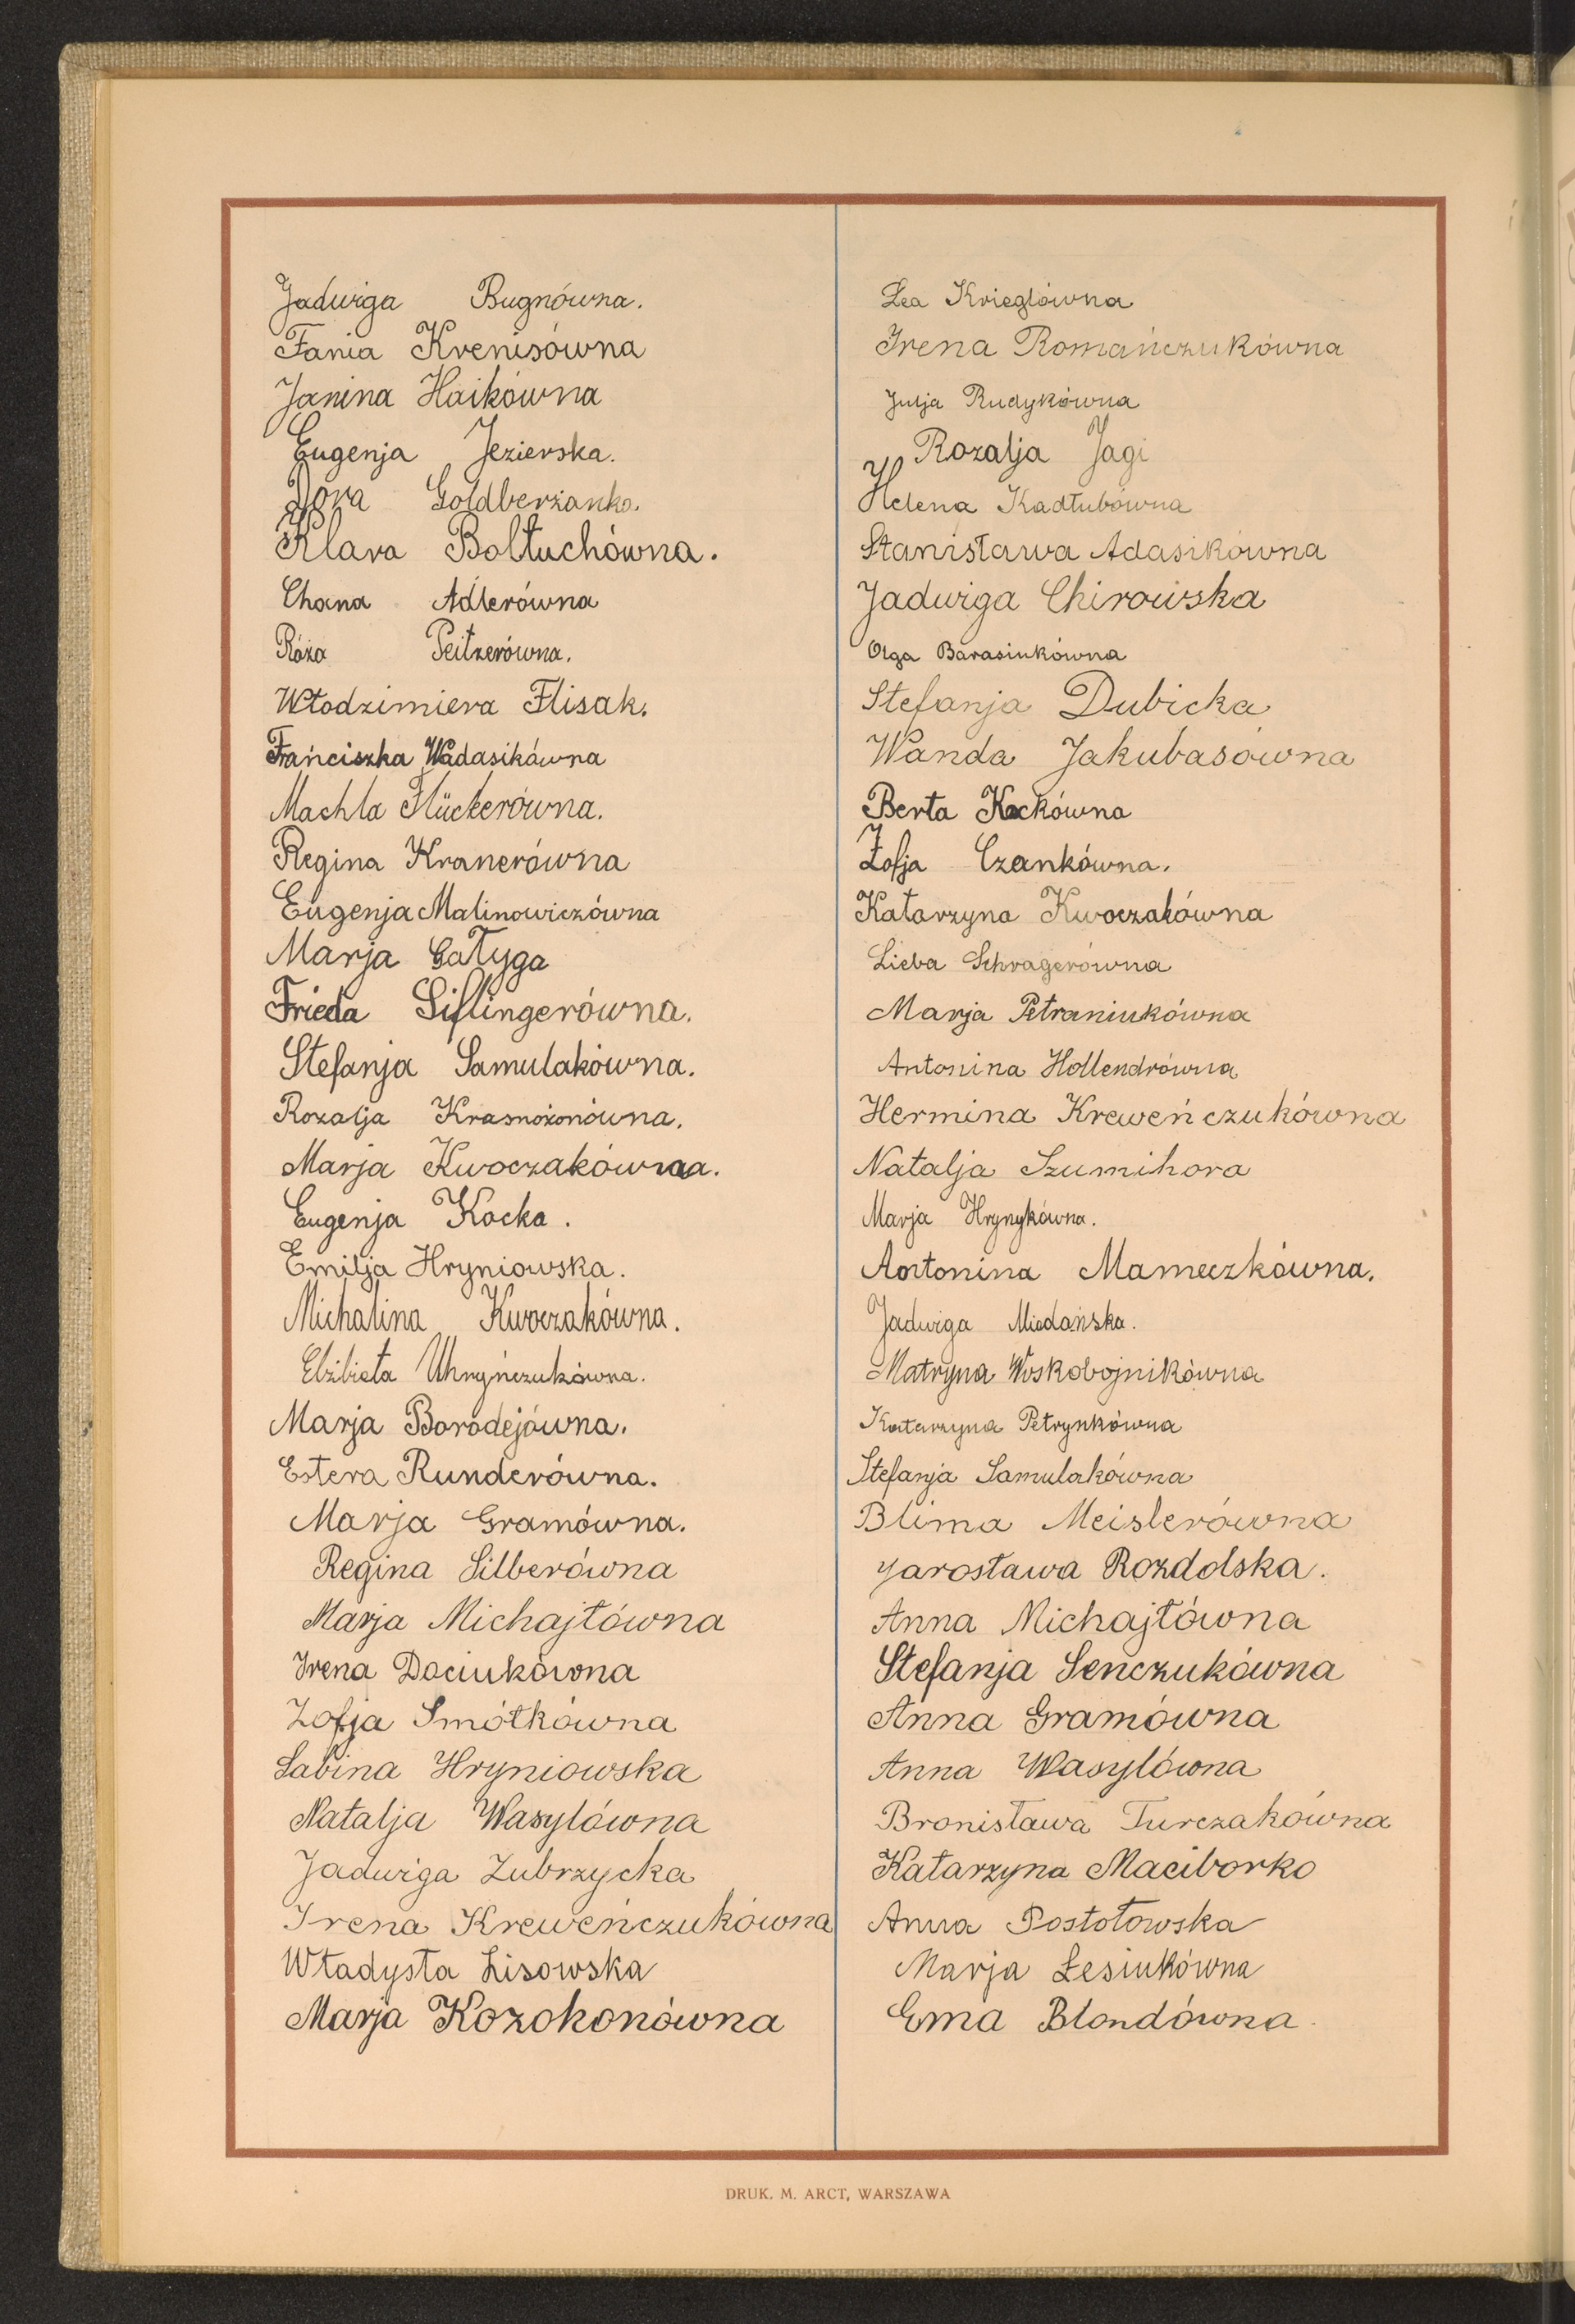 Jadwiga Bugnówna.
Fania Krenisówna
Janina Haikówna
Eugenja Jezierska.
Dora Goldberżanka.
Klara Bołtuchówna.
Chana Adlerówna
Róża Peitzerówna.
Włodzimiera Flisak.
Franciszka Wadasikówna
Machla Flückerówna.
Regina Kranerówna
Eugenja Malinowiczówna
Marja Gałyga
Frieda Siflingerówna.
Stefanja Samulakówna.
Rozalja Krasnożonówna.
Marja Kwoczakówna.
Eugenja Kocka.
Emilja Hryniowska.
Michalina Kwoczakówna.
Elżbieta Uhryńczukówna.
Marja Borodejówna.
Estera Runderówna.
Marja Gramówna.
Regina Silberówna
Marja Michajłówna
Irena Daciukówna
Zofja Smółkówna
Sabina Hryniowska
Natalja Wasylówna
Jadwiga Zubrzycka
Irena Kreweńczukówna
Władysła Lisowska
Marja Kozokonówna
Lea Krieglówna
Irena Romańczukówna
Julja Rudykówna
Rozalja Jagi
Helena Kadłubówna
Stanisława Adasikówna
Jadwiga Chirowska
Olga Barasiukówna
Stefanja Dubicka
Wanda Jakubasówna
Berta Kockówna
Zofja Czankówna.
Katarzyna Kwoczakówna
Lieba Schragerówna
Marja Petraniukówna
Antonina Hollendrówna
Hermina Kreweńczukówna
Natalja Szumihora
Marja Hrynykówna.
Antonina Mameczkówna.
Jadwiga Miodońska.
Matryna Woskobojnikówna
Katarzyna Petrynkówna
Stefanja Samulakówna
Blima Meislerówna
Jarosława Rozdolska.
Anna Michajłówna
Stefanja Senczukówna
Anna Gramówna
Anna Wasylówna
Bronisława Turczakówna
Katarzyna Maciborko
Anna Postołowska
Marja Łesiukówna
Ema Blondówna.
DRUK. M. ARCT, WARSZAWA